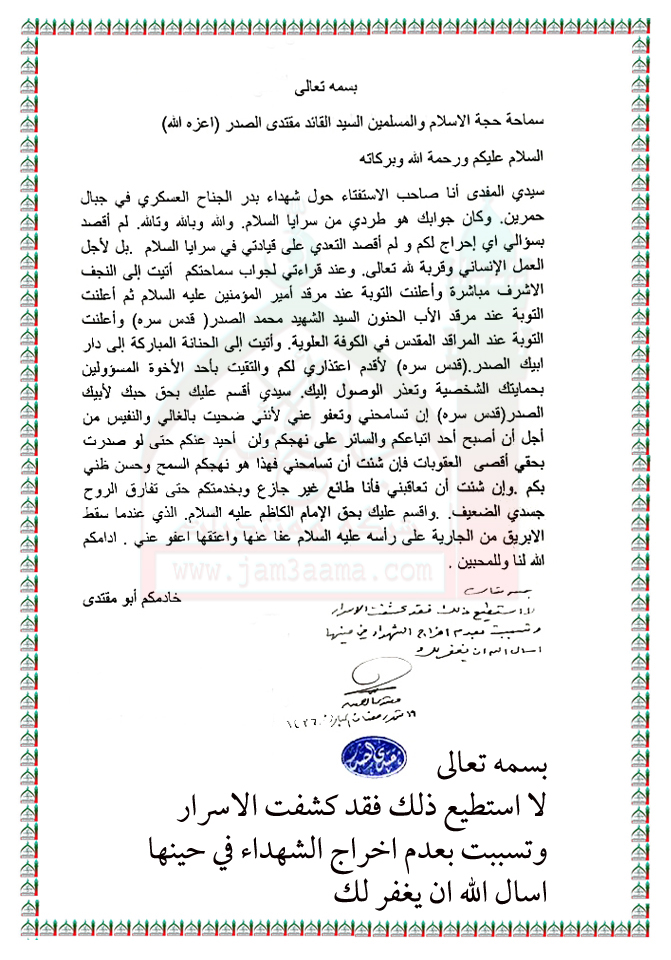 بسمه تعالى
سماحة حجة الاسلام والمسلمين السيد القائد مقتدى الصدر (اعزه الله)
السلام عليكم ورحمة الله وبركاته
سيدي المفدى أنا صاحب الاستفتاء حول شهداء بدر الجناح العسكري في جبال
حمرين. وكان جوابك هو طردي من سرايا السلام. والله وبالله وتالله. لم أقصد
بسؤالي اي إحراج لكم و لم أقصد التعدي على قيادتي في سرايا السلام .بل لأجل
العمل الإنساني وقربة لله تعالى. وعند قراءتي لجواب سماحتكم أتيت إلى النجف
الاشرف مباشرة وأعلنت التوبة عند مرقد أمير المؤمنين عليه السلام ثم أعلنت
التوبة عند مرقد الأب الحنون السيد الشهيد محمد الصدر( قدس سره) وأعلنت
التوبة عند المراقد المقدس في الكوفة العلوية. وأتيت إلى الحنانة المباركة إلى دار
ابيك الصدر.(قدس سره) لأقدم اعتذاري لكم والتقيت بأحد الأخوة المسؤولين
بحمايتك الشخصية وتعذر الوصول إليك. سيدي أقسم عليك بحق حبك لأبيك
الصدر(قدس سره) إن تسامحني وتعفو عني لأنني ضحيت بالغالي والنفيس من
أجل أن أصبح أحد اتباعكم والسائر على نهجكم ولن أحيد عنكم حتى لو صدرت
بحقي أقصى العقوبات فإن شئت أن تسامحني فهذا هو نهجكم السمح وحسن ظني
بكم .وإن شئت أن تعاقبني فأنا طائع غير جازع وبخدمتكم حتى تفارق الروح
جسدي الضعيف. . واقسم عليك بحق الإمام الكاظم عليه السلام. الذي عندما سقط
الابريق من الجارية على رأسه عليه السلام عفا عنها واعتقها اعفو عني . ادامكم
الله لنا وللمحبين .
خادمكم أبو مقتدى
www.jam3aama.com
بسمه تعالى
لا استطيع ذلك فقد كشفت الاسرار
وتسببت بعدم اخراج الشهداء في حينها
اسال الله ان يغفر لك
مقتدى الصدر
١٩ شهر رمضان المبارك ١٤٣٦
مقتدى الصدر
بسمه تعالى
لا استطيع ذلك فقد كشفت الاسرار
وتسببت بعدم اخراج الشهداء في حينها
اسال الله ان يغفر لك